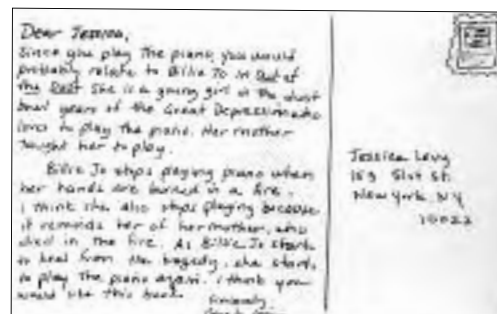 Dear Jessica,
Since you play the piano, you would
probably relate to Billie Jo in Out of
the Dust. She is a young girl in the dust
bowl years of the Great Depression who
loves to play the piano. Her mother
taught her to play.
Billie Jo stops playing piano when
her hands are burned in a fire.
I think she also stops playing because
it reminds her of her mother, who
died in the fire. As Billie Jo starts
to heal from the tragedy, she starts
to play the piano again. I think you
would like this book.
Sincerely,
Jessica Levy
St.
New York, NY
10022